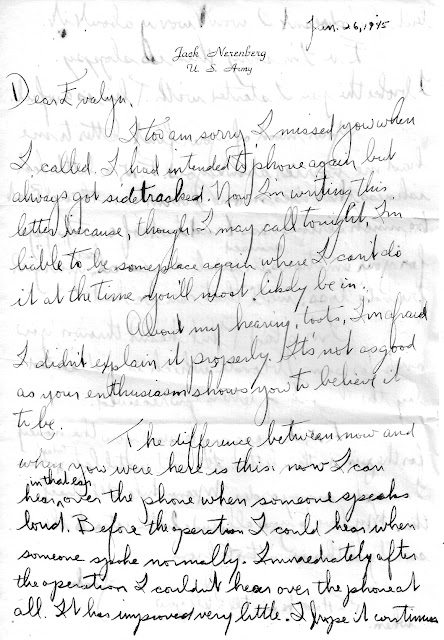 Jan. 26, 1945
Jack Nerenberg
U. S. Army
Dear Evalyn,
I too am sorry I missed you when
I called. I had intended to phone again but
always got sidetracked. Now I'm writing this
letter because, though I may call tonight, I'm
liable to be someplace again where I can't do
it at the time you'll most likely be in.
About my hearing, toots, I'm afraid
I didn't explain it properly. It's not as good
as your enthusiasm shows you to believe it
to be.
The difference between now and
when you were here is this: now I can
in that ear
hear over the phone when someone speaks
loud. Before the operation I could hear when
someone spoke normally. Immediately after
the operation I couldn't hear over the phone at
all. It has improved very little. I hope it continues